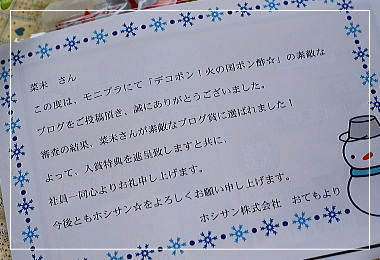 菜未　さん
この度は、モニプラにて「デコポン！火の国ポン酢☆」の素敵な
ブログをご投稿頂き、誠にありがとうございました。
審査の結果、菜未さんが素敵なブログ賞に選ばれました！
よって、入賞特典を進呈致しますと共に、
社員一同心よりお礼申し上げます。
今後ともホシサン☆をよろしくお願い申し上げます。
ホシサン株式会社　おてもより